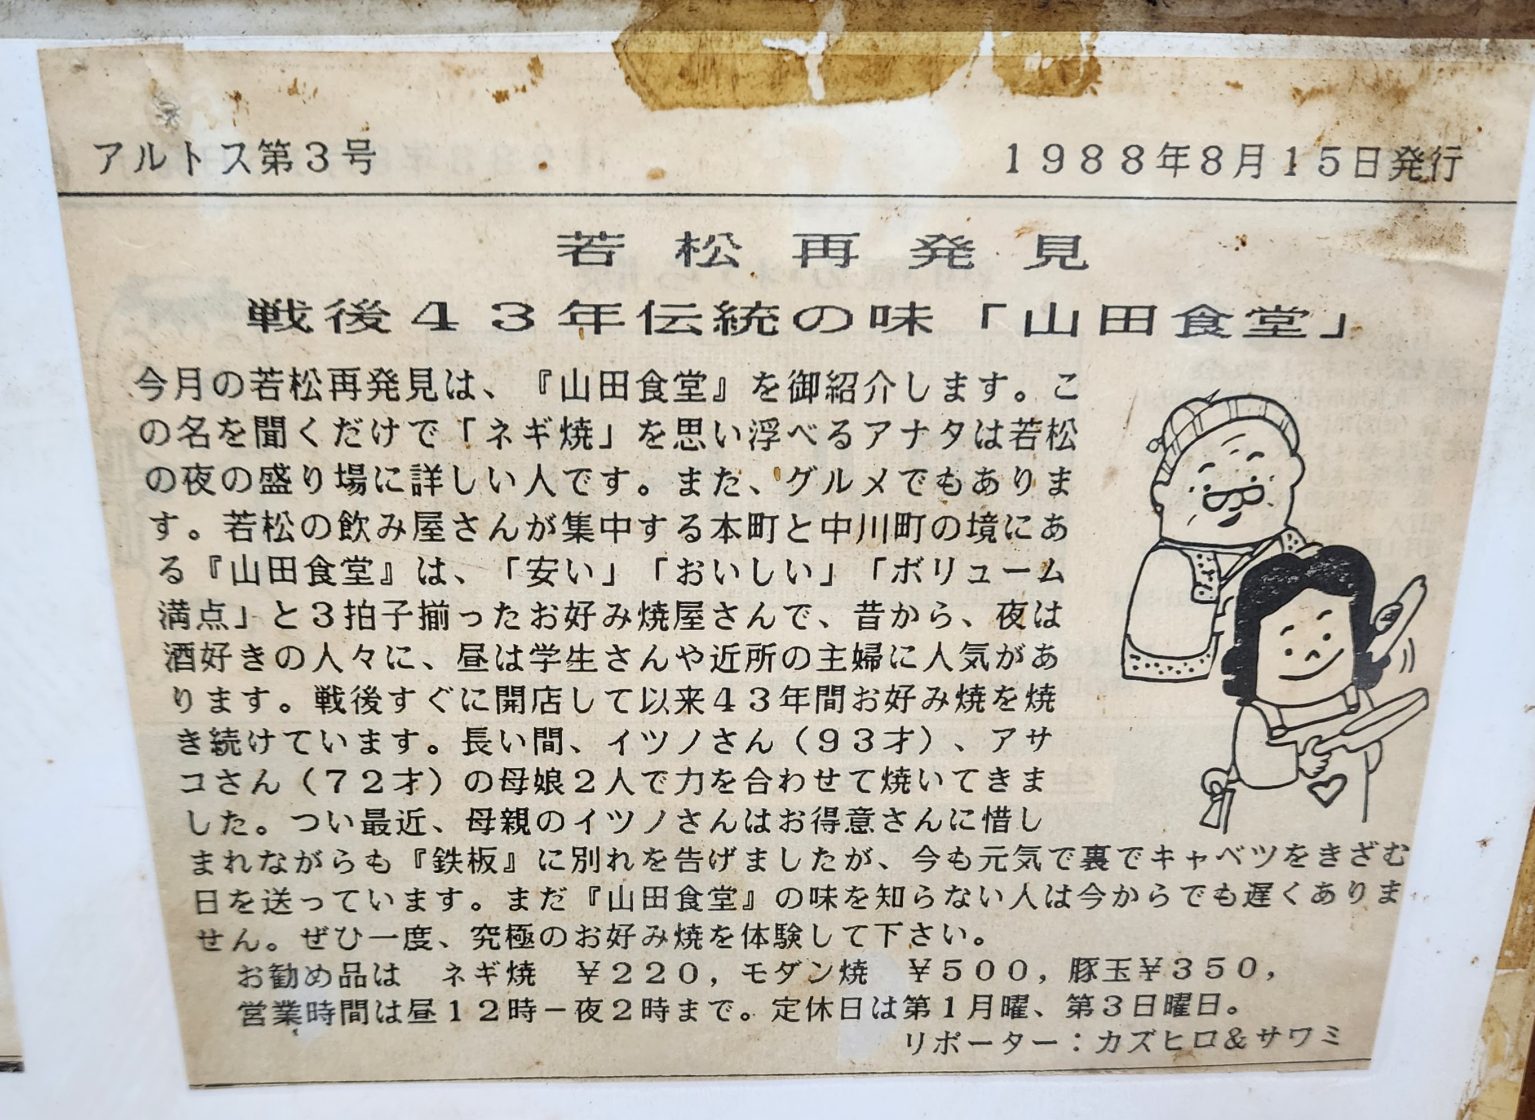 アルトス第3号
1988年8月15日発行
若松再発見
戦後43年伝統の味「山田食堂」
今月の若松再発見は、『山田食堂』を御紹介します。こ
の名を聞くだけで「ネギ焼」を思い浮べるアナタは若松
の夜の盛り場に詳しい人です。また、グルメでもありま
す。若松の飲み屋さんが集中する本町と中川町の境にあ
る『山田食堂』は、「安い」「おいしい」「ボリューム
満点」と3拍子揃ったお好み焼屋さんで、昔から、夜は
酒好きの人々に、昼は学生さんや近所の主婦に人気があ
ります。戦後すぐに開店して以来43年間お好み焼を焼
き続けています。長い間、イツノさん(93才)、アサ
コさん(72才)の母娘2人で力を合わせて焼いてきま
した。つい最近、母親のイツノさんはお得意さんに惜し
まれながらも『鉄板』に別れを告げましたが、今も元気で裏でキャベツをきざむ
日を送っています。まだ『山田食堂』の味を知らない人は今からでも遅くありま
せん。ぜひ一度、究極のお好み焼を体験して下さい。
お勧め品は ネギ焼 ¥220, モダン焼 ¥500, 豚玉¥350,
営業時間は昼12時-夜2時まで。定休日は第1月曜、第3日曜日。
リポーター:カズヒロ&サワミ